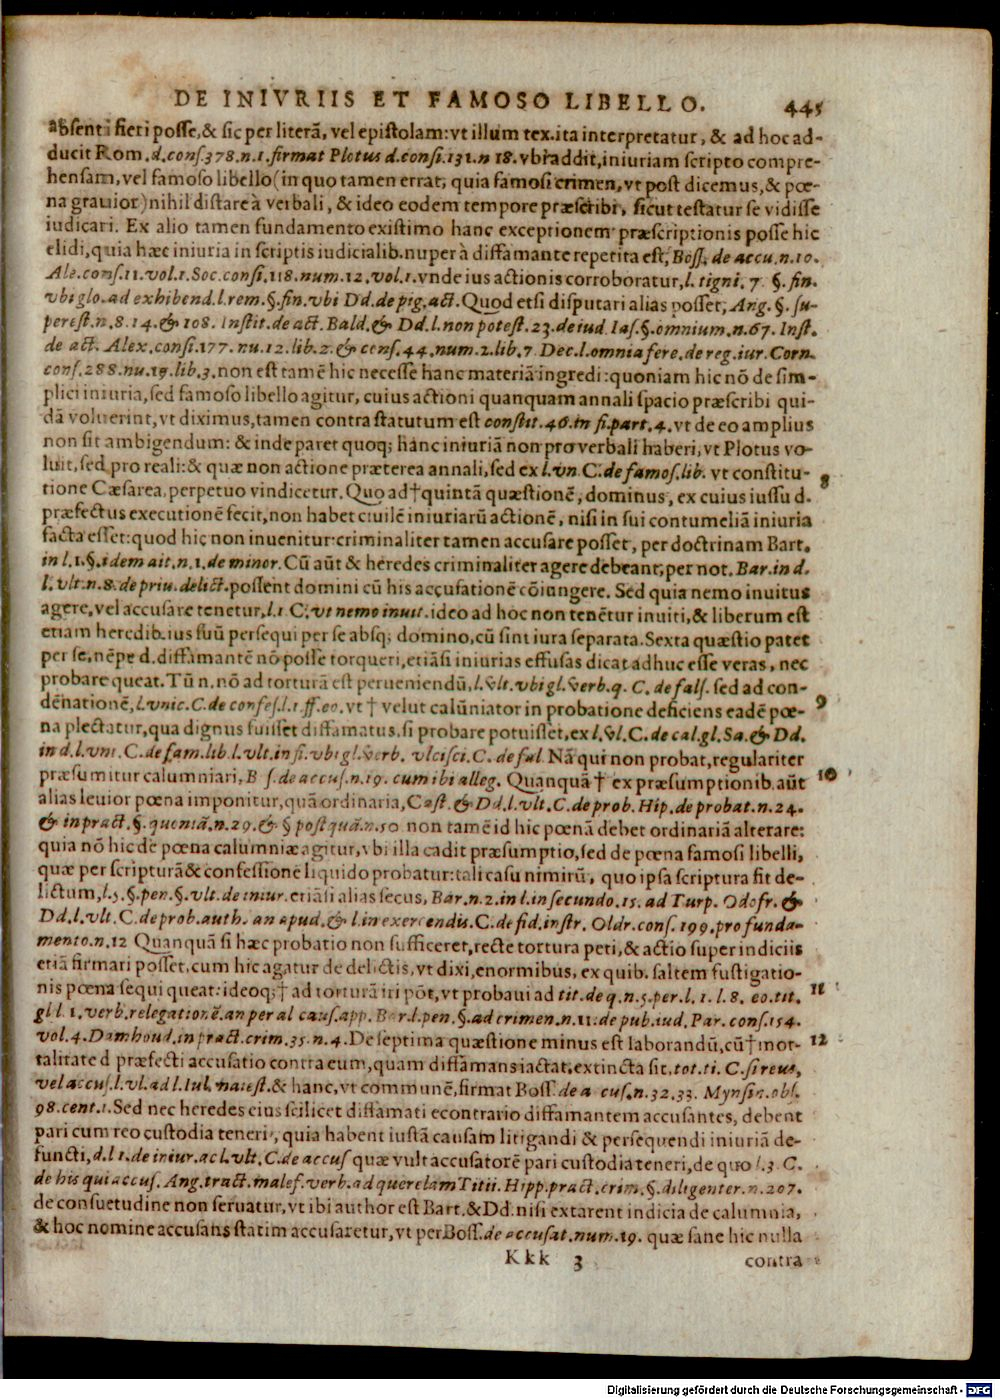 DE INIVRIIS ET FAMOSO LIBELLO. 445
absenti fieri posse,& sic per literã, vel epistolam:vt illum tex.ita interpretatur, & ad hoc ad-
ducit Rom.d.cons.378.n.1.firmat Plotus d.consi.131.n 18.vbi addit,iniuriam scripto compre-
hensam,vel famoso libello(in quo tamen errat, quia famosi crimen,vt post dicemus,& pœ-
na grauior)nihil distare à verbali, & ideo eodem tempore præscribi, sicut testatur se vidisse
iudicari. Ex alio tamen fundamento existimo hanc exceptionem præscriptionis posse hic
elidi,quia hæc iniuria in scriptis iudicialib.nuper à diffamante repetita est, Boss. de accu.n.10.
Ale.cons.11.vol.1.Soc.consi.118.num.12.vol.1.vnde ius actionis corroboratur,l.tigni. 7. §.fin.
vbi glo.ad exhibend.l.rem.§.fin.vbi Dd.de pig.act.Quod etsi disputari alias posset, Ang.§.su-
perest.n.8.14.& 108. Instit.de act.Bald.& Dd.l.non potest.23.de iud.Ias.§.omnium.n.67.Inst.
de act. Alex.consi.177.nu.12.lib.2.& cons.44.num.2.lib.7 Dec.l.omnia fere.de reg.iur.Corn.
cons.288.nu.19.lib.3.non est tamē hic necesse hanc materiã ingredi:quoniam hic nõ de sim-
plici iniuria,sed famoso libello agitur, cuius actioni quanquam annali spacio præscribi qui-
dã voluerint,vt diximus,tamen contra statutum est constit.46.in fi.part.4.vt de eo amplius
non sit ambigendum: & inde paret quoq; hanc iniuriã non pro verbali haberi,vt Plotus vo-
luit,sed pro reali:& quæ non actione præterea annali,sed ex l.vn.C.de famos.lib. vt constitu-
tione Cæsarea,perpetuo vindicetur.Quo ad†quintã quæstionē,dominus,ex cuius iussu d. 8
præfectus executionē fecit,non habet ciuilē iniuriarũ actionē, nisi in sui contumeliã iniuria
facta esset:quod hic non inuenitur:criminaliter tamen accusare posset, per doctrinam Bart.
in l.1.§.idem ait.n.1.de minor.Cũ aũt & heredes criminaliter agere debeant,per not.Bar.in d.
l.vlt.n.8.de priu.delict.possent domini cũ his accusationē cõiungere. Sed quia nemo inuitus
agere,vel accusare tenetur,l.1 C.vt nemo inuit.ideo ad hoc non tenētur inuiti,& liberum est
etiam heredib.ius suũ persequi per se absq; domino,cũ sint iura separata.Sexta quæstio patet
per se,nēpe d.diffamantē nõ posse torqueri,etiãsi iniurias effusas dicat adhuc esse veras, nec
probare queat.Tũ n.nõ ad torturã est perueniendũ,l.vlt.vbi gl.verb.q. C.de fals. sed ad con-
dēnationē,l.vnic.C.de confes.l.1.ff.eo.vt † velut calũniator in probatione deficiens eadē pœ- 9
na plectatur,qua dignus fuisset diffamatus,si probare potuisset,ex l.vl.C.de cal.gl.Sa.& Dd.
in d.l.vni.C.de fam.lib.l.vlt.in fi.vbi gl.verb. vlcisci.C.de fal. Nã qui non probat,regulariter
præsumitur calumniari, de accus.n.19. cum ibi alleg. Quanquã † ex præsumptionib.aũt 10
alias leuior pœna imponitur,quã ordinaria, Cast.& Dd.l.vlt.C.de prob. Hip.de probat.n.24.
& in pract.§.quoniã.n.29.& § postquã.n.50 non tamē id hic pœnã debet ordinariã alterare:
quia nõ hic de pœna calumniæ agitur,vbi illa cadit præsumptio,sed de pœna famosi libelli,
quæ per scripturã& confessionē liquido probatur:tali casu nimirũ, quo ipsa scriptura fit de-
lictum,l.5.§.pen.§.vlt.de iniur.etiãsi alias secus, Bar.n.2.in l.in secundo.15. ad Turp. Odofr. &
Dd.l.vlt.C.de prob.auth. an apud.& l.in exercendis.C.de fid.instr. Oldr.cons.199.pro funda-
mento.n.12 Quanquã si hæc probatio non sufficeret,recte tortura peti,& actio super indiciis
etiã firmari posset,cum hic agatur de delictis,vt dixi,enormibus, ex quib. saltem fustigatio-
nis pœna sequi queat:ideoq;† ad torturã iri põt,vt probaui ad tit.de q.n.5.per.l.1.l.8. eo.tit. 11
gl l.1.verb.relegationē.an per al caus.app. Bar.l.pen.§.ad crimen.n.11.de pub.iud. Par. cons.154.
vol.4.Damhoud.in pract.crim.35.n.4.De septima quæstione minus est laborandũ,cũ†mor- 12
talitate d præfecti accusatio contra eum,quam diffamans iactat,extincta sit,tot.ti.C.si reus,
vel accus.l.vl.ad l.Iul.maiest.& hanc,vt communē,firmat Boss.de accus.n.32.33. Mynsin.obs.
98.cent.1.Sed nec heredes eius scilicet diffamati econtrario diffamantem accusantes, debent
pari cum reo custodia teneri, quia habent iustã causam litigandi & persequendi iniuriã de-
functi,d.l 1.de iniur.ac l.vlt.C.de accus quæ vult accusatorē pari custodia teneri,de quo l.3.C.
de his qui accus. Ang.tract.malef.verb.ad querelam Titii.Hipp.pract.crim.§.diligenter.n.207.
de consuetudine non seruatur,vt ibi author est Bart.&Dd.nisi extarent indicia de calumnia,
& hoc nomine accusans statim accusaretur,vt per Boss.de accusat.num.19. quæ sane hic nulla
Kkk 3 contra
Digitalisierung gefördert durch die Deutsche Forschungsgemeinschaft - DFG